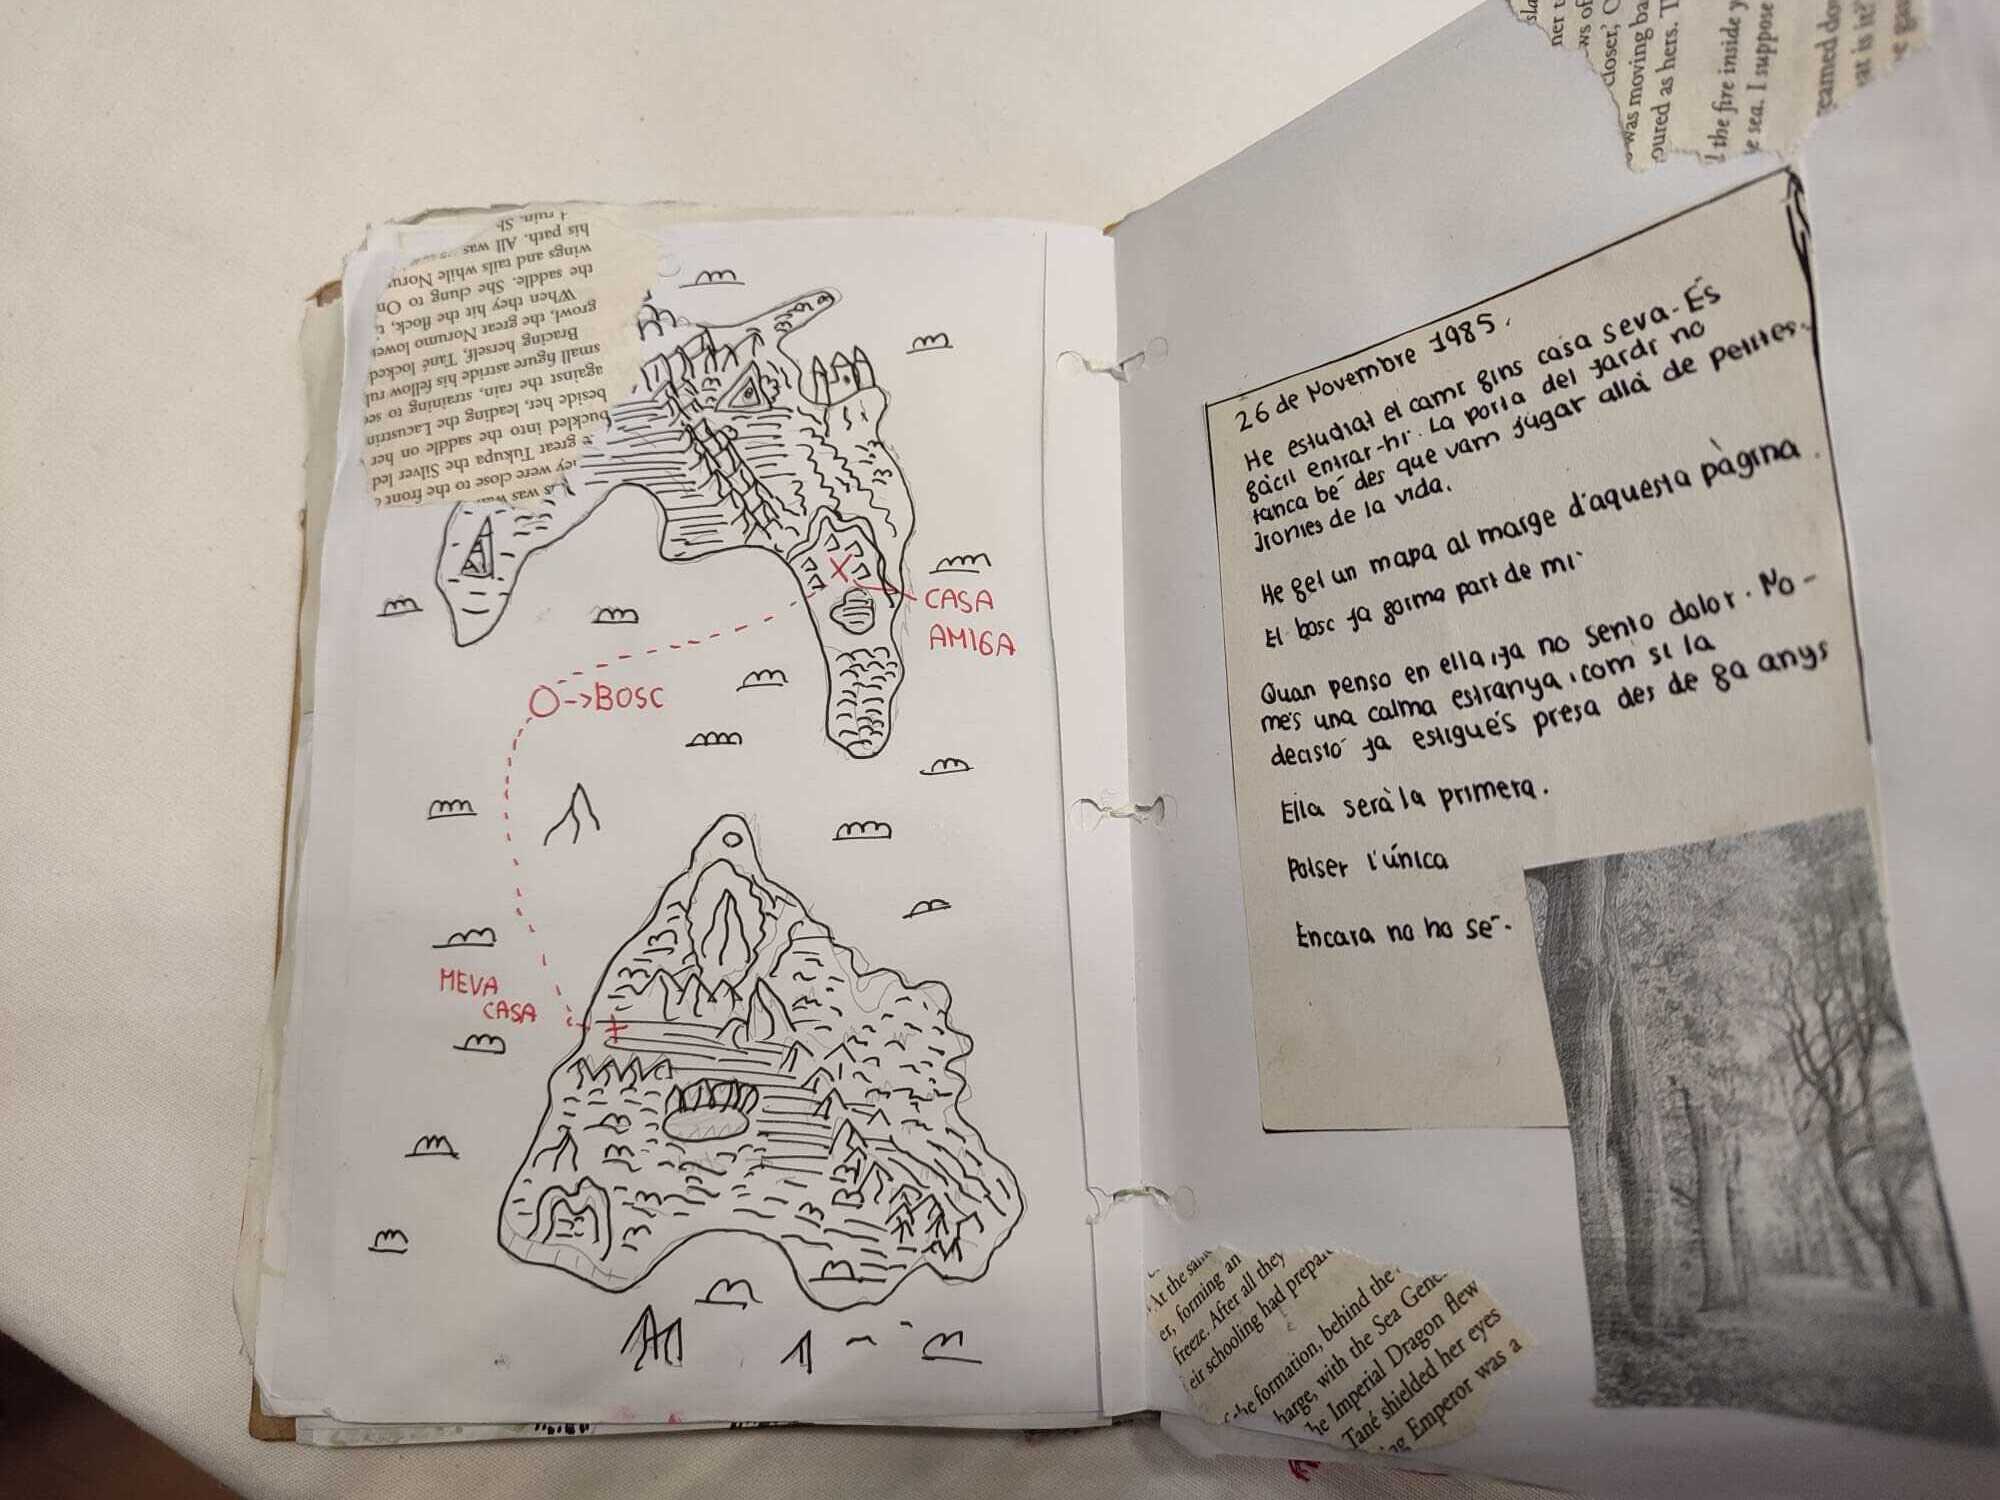 were close to the front
great Tukupa the Silver led
buckled into the saddle on her
beside her, leading the
against the rain, straining to
small figure astride his fellow
Bracing herself, Tané locked
growl, the great Norumo
When they hit the flock,
the saddle. She clung to
wings and tails while
his path. All was
ruin.
CASA
AMIGA
O->BOSC
MEVA
CASA
26 de Novembre 1985.
He estudiat el camí fins casa seva. És
fàcil entrar-hi. La porta del jardí no
tanca bé des que vam jugar allà de petites.
Ironies de la vida.
He fet un mapa al marge d'aquesta pàgina.
El bosc ja forma part de mi.
Quan penso en ella, ja no sento dolor. No-
més una calma estranya, com si la
decisió ja estigués presa des de fa anys
Ella serà la primera.
Potser l'única
Encara no ho sé.
closer,
was moving
oured as hers.
the fire inside
sea. I suppose
At the
er, forming an
freeze. After all they
eir schooling had
formation, behind the
harge, with the Sea
he Imperial Dragon flew
Tané shielded her eyes
Emperor was a